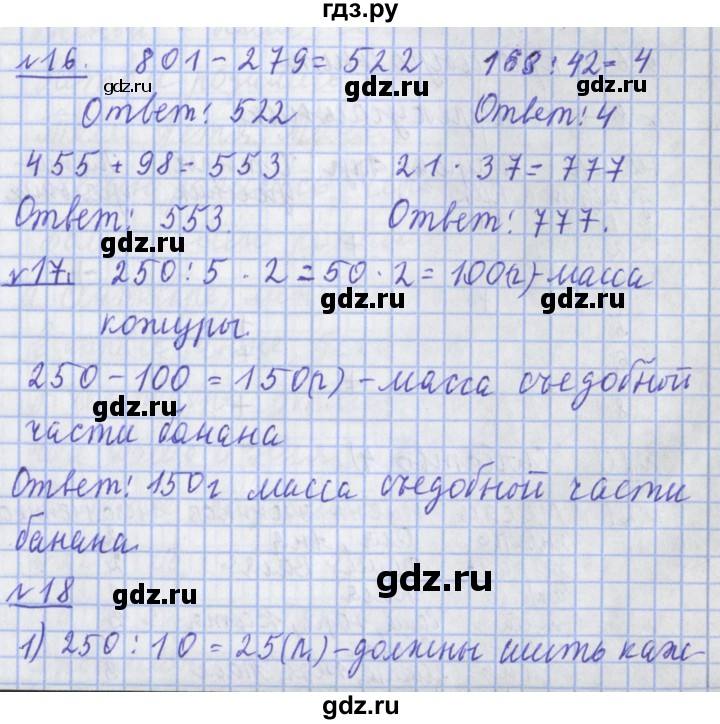 гдз.ру
№16. 801 - 279 = 522 168 : 42 = 4
Ответ: 522 Ответ: 4
455 + 98 = 553 21 · 37 = 777
Ответ: 553. Ответ: 777.
№17. 250 : 5 · 2 = 50 · 2 = 100(г) - масса
кожуры.
250 - 100 = 150(г) - масса съедобной
части банана
Ответ: 150 г масса съедобной части
банана.
№18
1) 250 : 10 = 25(п.) - должны шить каж-
gdz.ru
gdz.ru
gdz.ru
gdz.ru
gdz.ru
gdz.ru
gdz.ru
gdz.ru
gdz.ru
gdz.ru
gdz.ru
gdz.ru